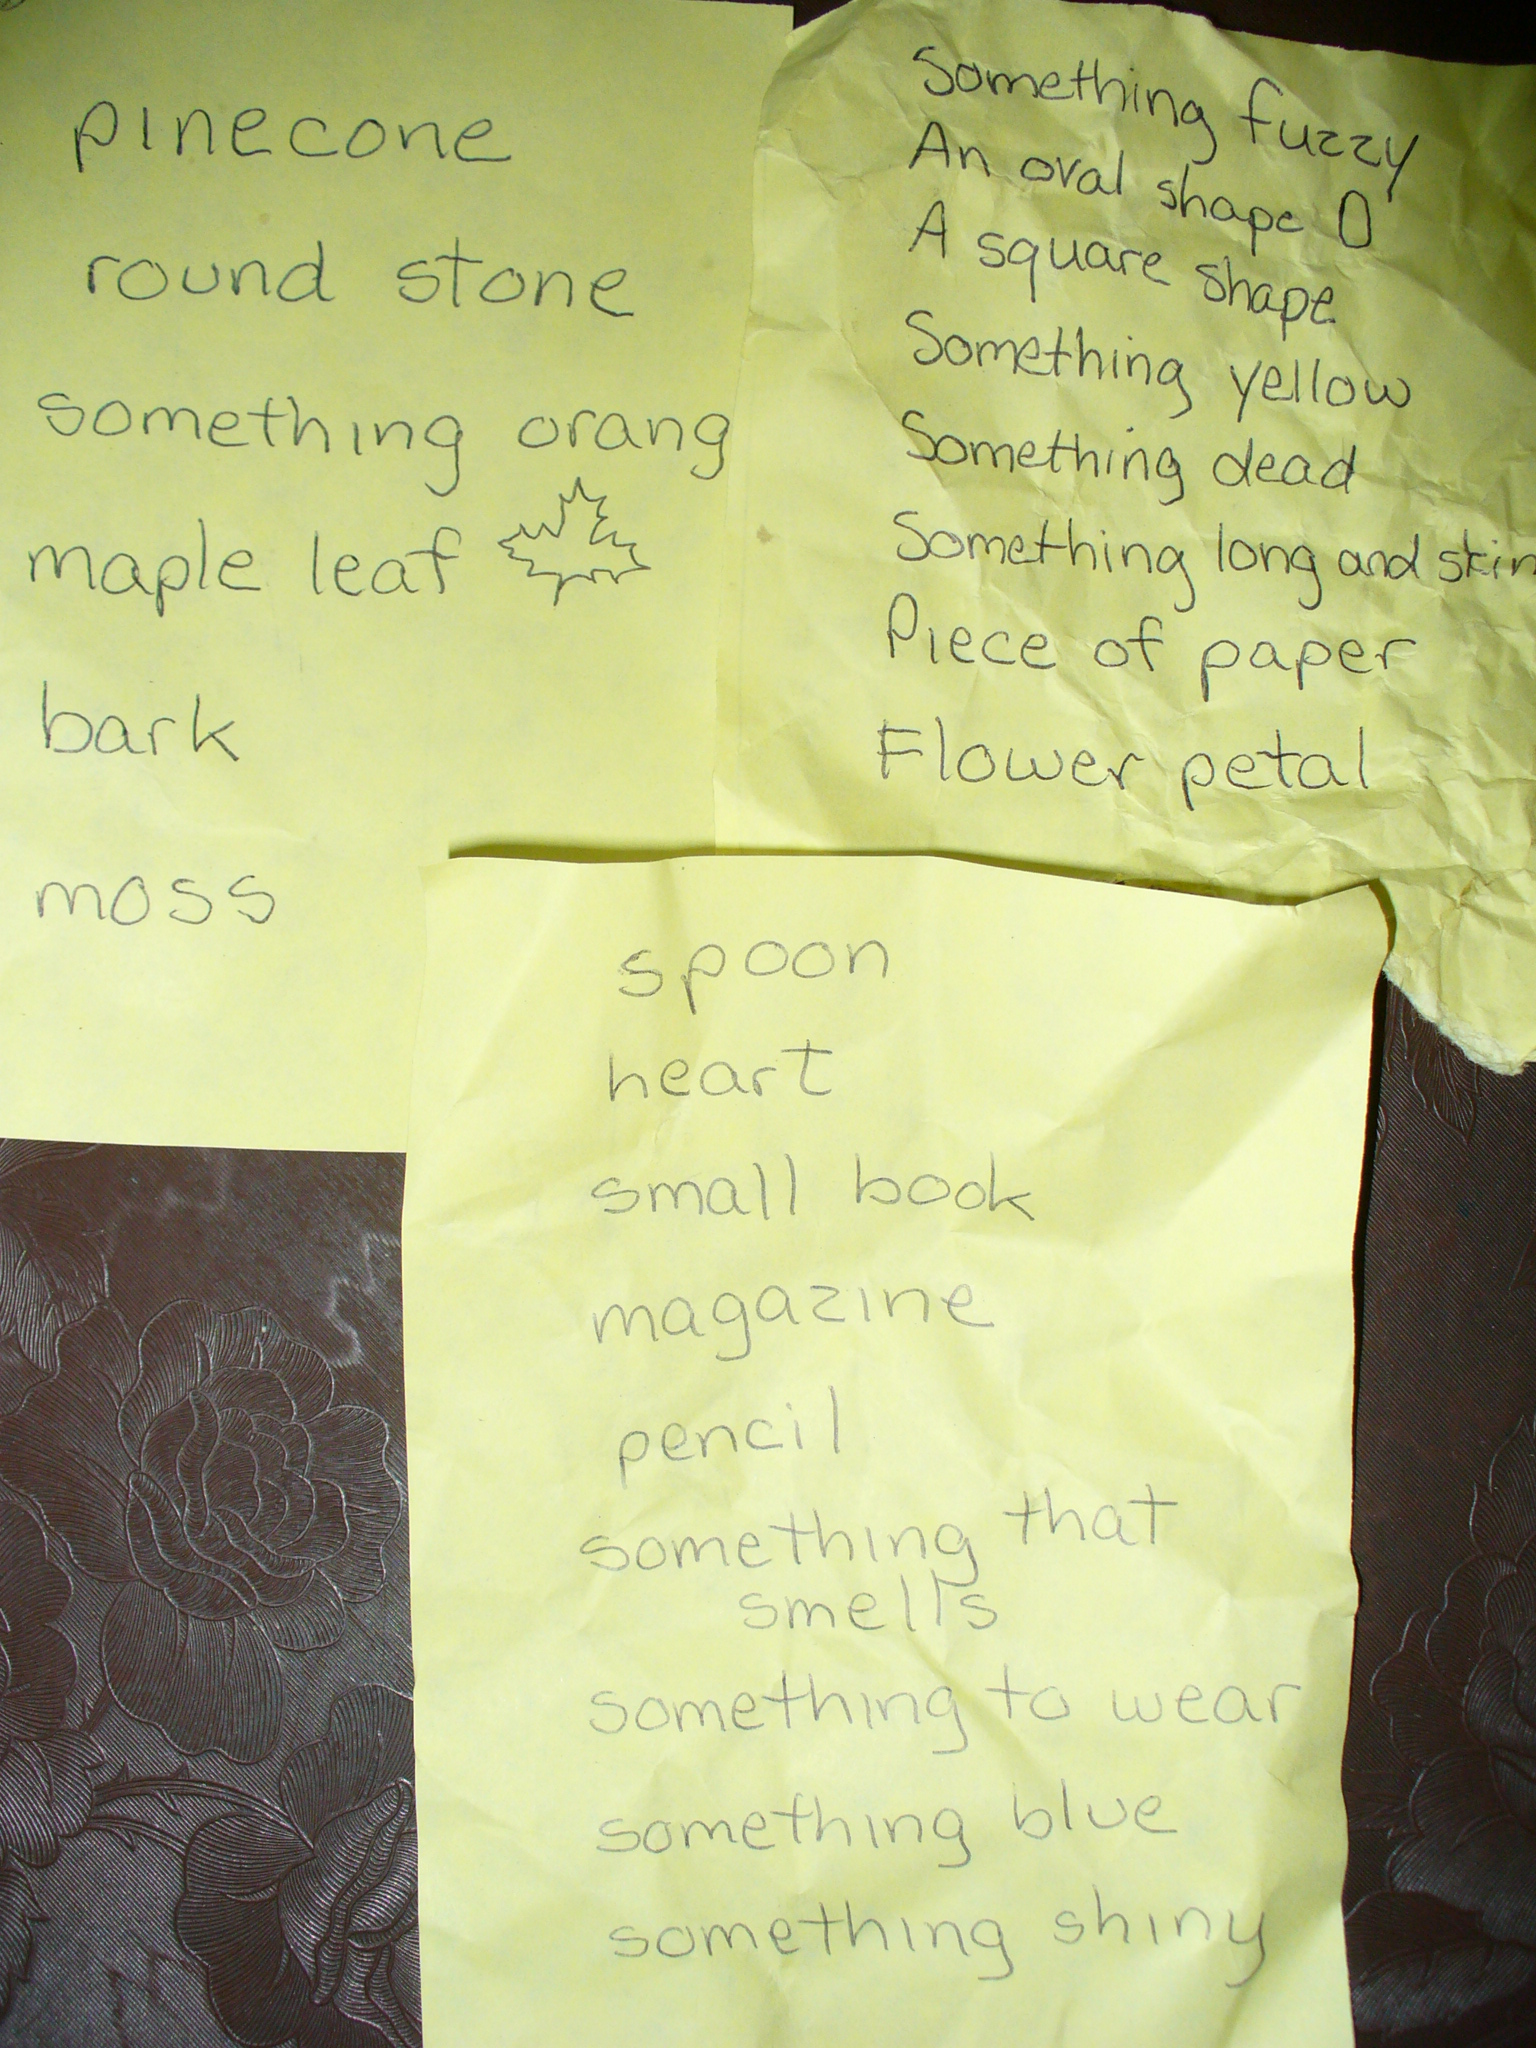 pinecone
round stone
something orang
maple leaf
bark
moss
Something fuzzy
An oval shape 0
A square shape
Something yellow
Something dead
Something long and skin
Piece of paper
Flower petal
spoon
heart
small book
magazine
pencil
something that
smells
something to wear
something blue
something shiny